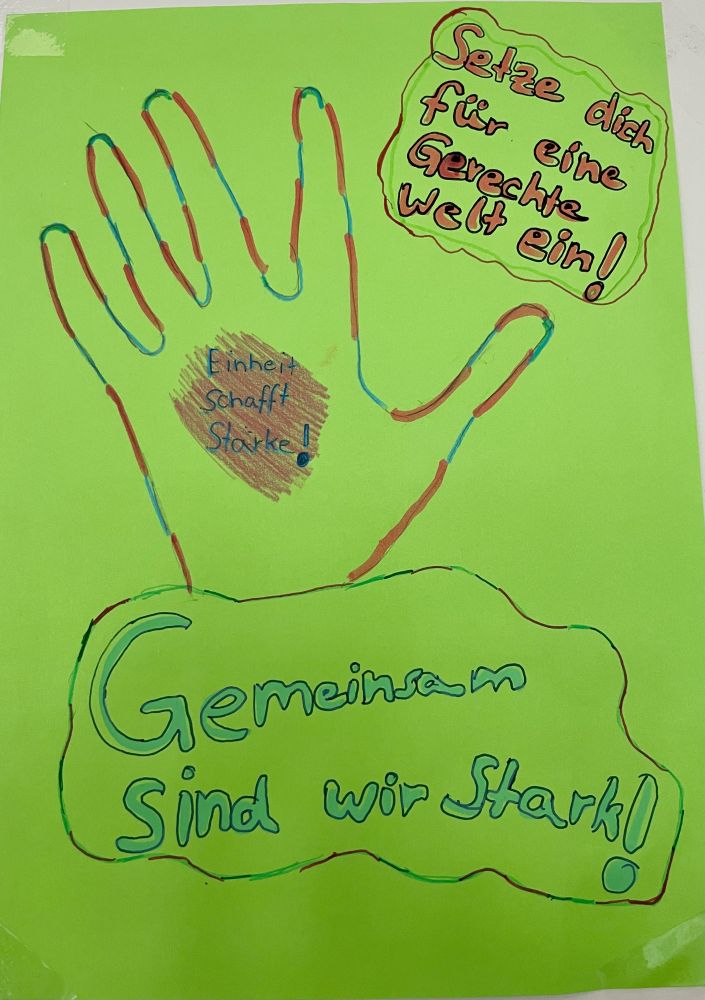 Setze dich
für eine
Gerechte
Welt ein!
Einheit
Schafft
Stärke!
Gemeinsam
sind wir Stark!